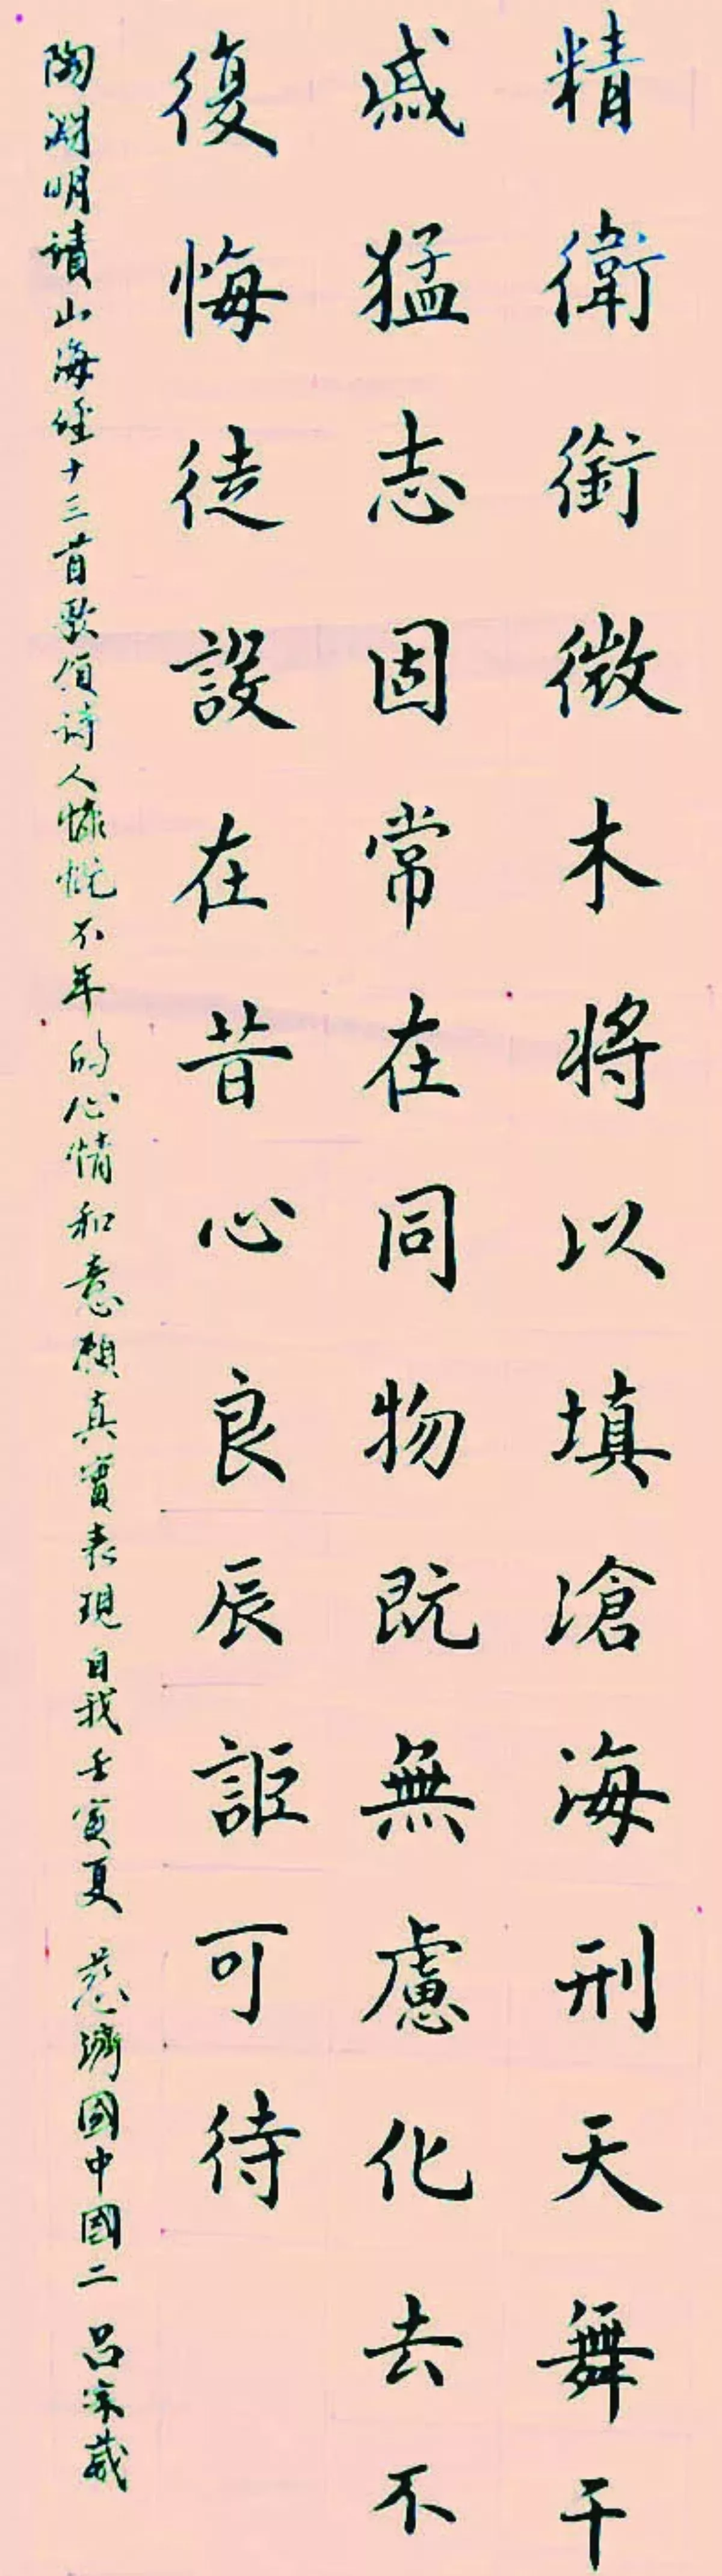 精衛銜微木將以填滄海刑天舞干
戚猛志固常在同物既無慮化去不
復悔徒設在昔心良辰詎可待
陶淵明讀山海經十三首歌頌詩人慷慨不年的心情和意願真實表現自我壬寅夏 慈濟國中國二 呂宗葳